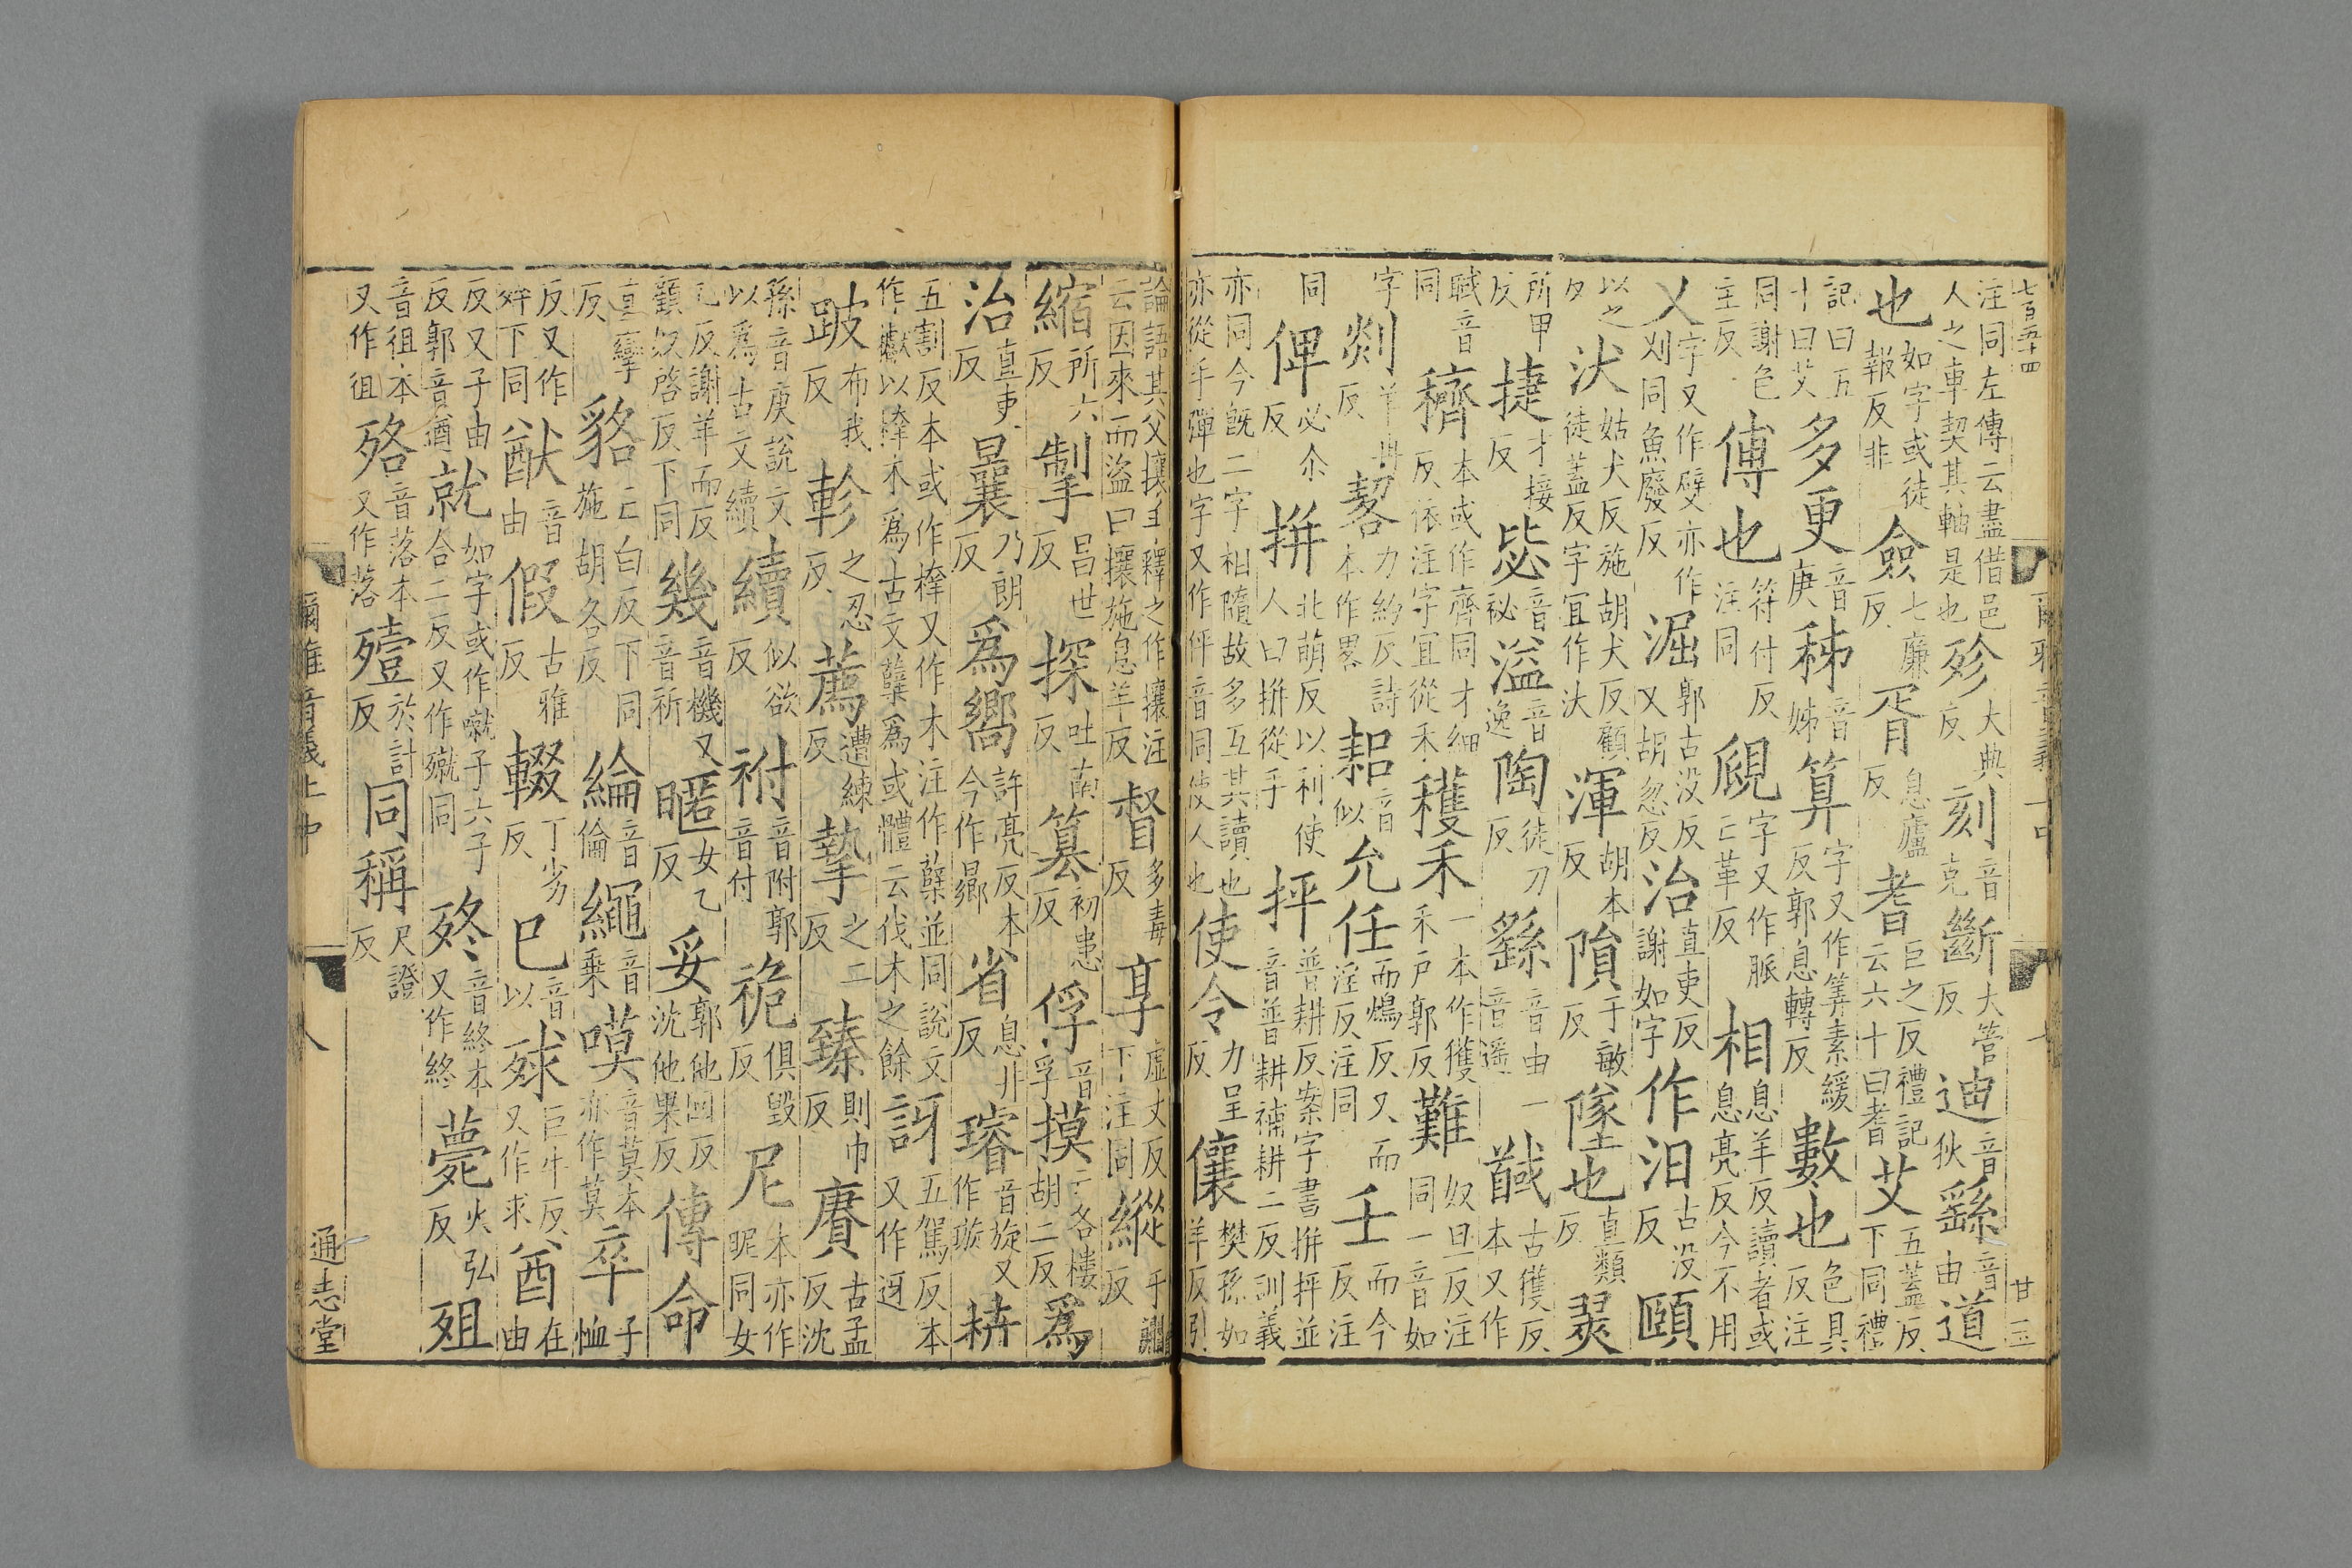 七百五十四
注同左傳云盡借邑人之車契其軸是也殄大典反刻音克斷大管反迪音狄繇音由道
也如字或徒報反非僉七廉反胥息廬反耆巨之反禮記云六十曰耆艾五蓋反下同禮
記曰五十曰艾多更音庚秭音姊算字又作筭素緩反郭息轉反數也色具反注
同謝色主反傅也符付反注同覛字又作脈亡革反相息羊反讀者或息亮反今不用
乂字又作嬖亦作刈同魚廢反淈郭古没反又胡忽反治直吏反謝如字作汨古没反頤
以之反汱姑犬反施胡犬反顧徒蓋反字宜作汏渾胡本反隕于敏反墜也直類反翜
所甲反捷才接反毖音祕溢音逸陶徒刀反繇音由一音遥馘古獲反本又作
聝音同穧本或作齊同才細反依注字宜從禾穫禾一本作獲禾戶郭反難奴旦反注同一音如
字剡羊冉反䂮力約反詩本作畧耜音似允任而鴆反又而淫反注同壬而今反注
同俾必尒反拼北萌反以利使人曰拼從手抨普耕反案字書拼抨並音普耕補耕二反訓義
亦同今既二字相隨故多互其讀也亦從手彈也字又作伻音同使人也使令力呈反儴樊孫如羊反引
論語其父攘羊釋之作攘注云因來而盜曰攘施息羊反督多毒反享虛丈反下注同縱子
縮所六反掣昌世反探吐南反篡初患反俘音孚摸亡各樓胡二反爲
治直吏反曩乃朗反爲嚮許亮反本今作曏省息井反璿音旋又作璇枿
五割反本或作㭮又作木注作蘖並同說文作𣡌以㭮木爲古文蘖爲或體云伐木之餘訝五駕反本又作迓
跛布我反軫之忍反薦遭練反摯之二反臻則巾反賡古孟反沈
孫音庚說文以爲古文續續似欲反祔音附郭音付祪俱毀反尼本亦作昵同女
乙反謝羊而反顧奴啓反下同幾音機又音祈暱女乙反妥郭他回反沈他果反傳命
直攣反貉亡白反下同施胡各反綸音倫繩音乘嗼音莫本亦作莫卒子恤
反又作猝下同猷音由假古雅反輟丁劣反已音以殏巨牛反又作求酋在由
反又子由反郭音遒就如字或作噈子六子合二反又作殧同㱯音終本又作終薨火弘反殂
音徂本又作徂㱰音落本又作落殪於計反同稱尺證反
爾雅音義上中
八
通志堂